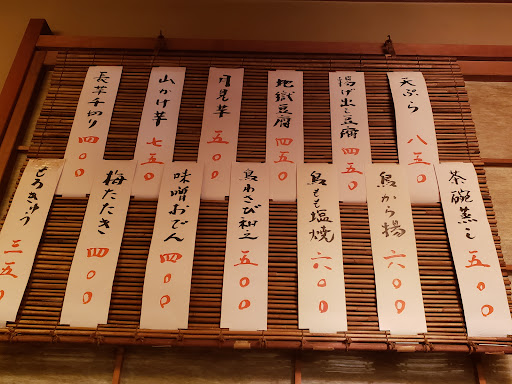 天ぷら 八五〇
揚げ出し豆腐 四五〇
地獄豆腐 四五〇
月見芋 五〇〇
山かけ芋 七五〇
長芋千切り 四〇〇
茶碗蒸し 五〇〇
鳥から揚 六〇〇
鳥もも塩焼 六〇〇
鳥わさび和え 五〇〇
味噌おでん 四〇〇
梅たたき 四〇〇
もろきゅう 三五〇